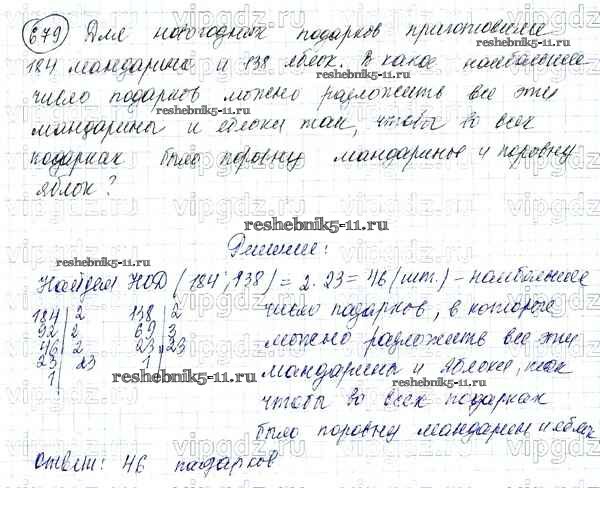 679 Для новогодних подарков приготовили
184 мандарина и 138 яблок. В какое наибольшее
число подарков можно разложить все эти
мандарины и яблоки так, чтобы во всех
подарках было поровну мандаринов и поровну
яблок?
reshebnik5-11.ru
Решение:
Найдем НОД (184; 138) = 2·23 = 46 (шт.) – наибольшее
184 | 2 138 | 2 число подарков, в которые
92 | 2 69 | 3 можно разложить все эти
46 | 2 23 | 23 мандарины и яблоки, так
23 | 23 1
1
reshebnik5-11.ru
чтобы во всех подарках
было поровну мандарин и яблок
Ответ: 46 подарков
reshebnik5-11.ru
vipgdz.ru